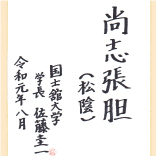 尚志張胆
(松陰)
国士舘大学
学長 佐藤圭一
令和元年八月